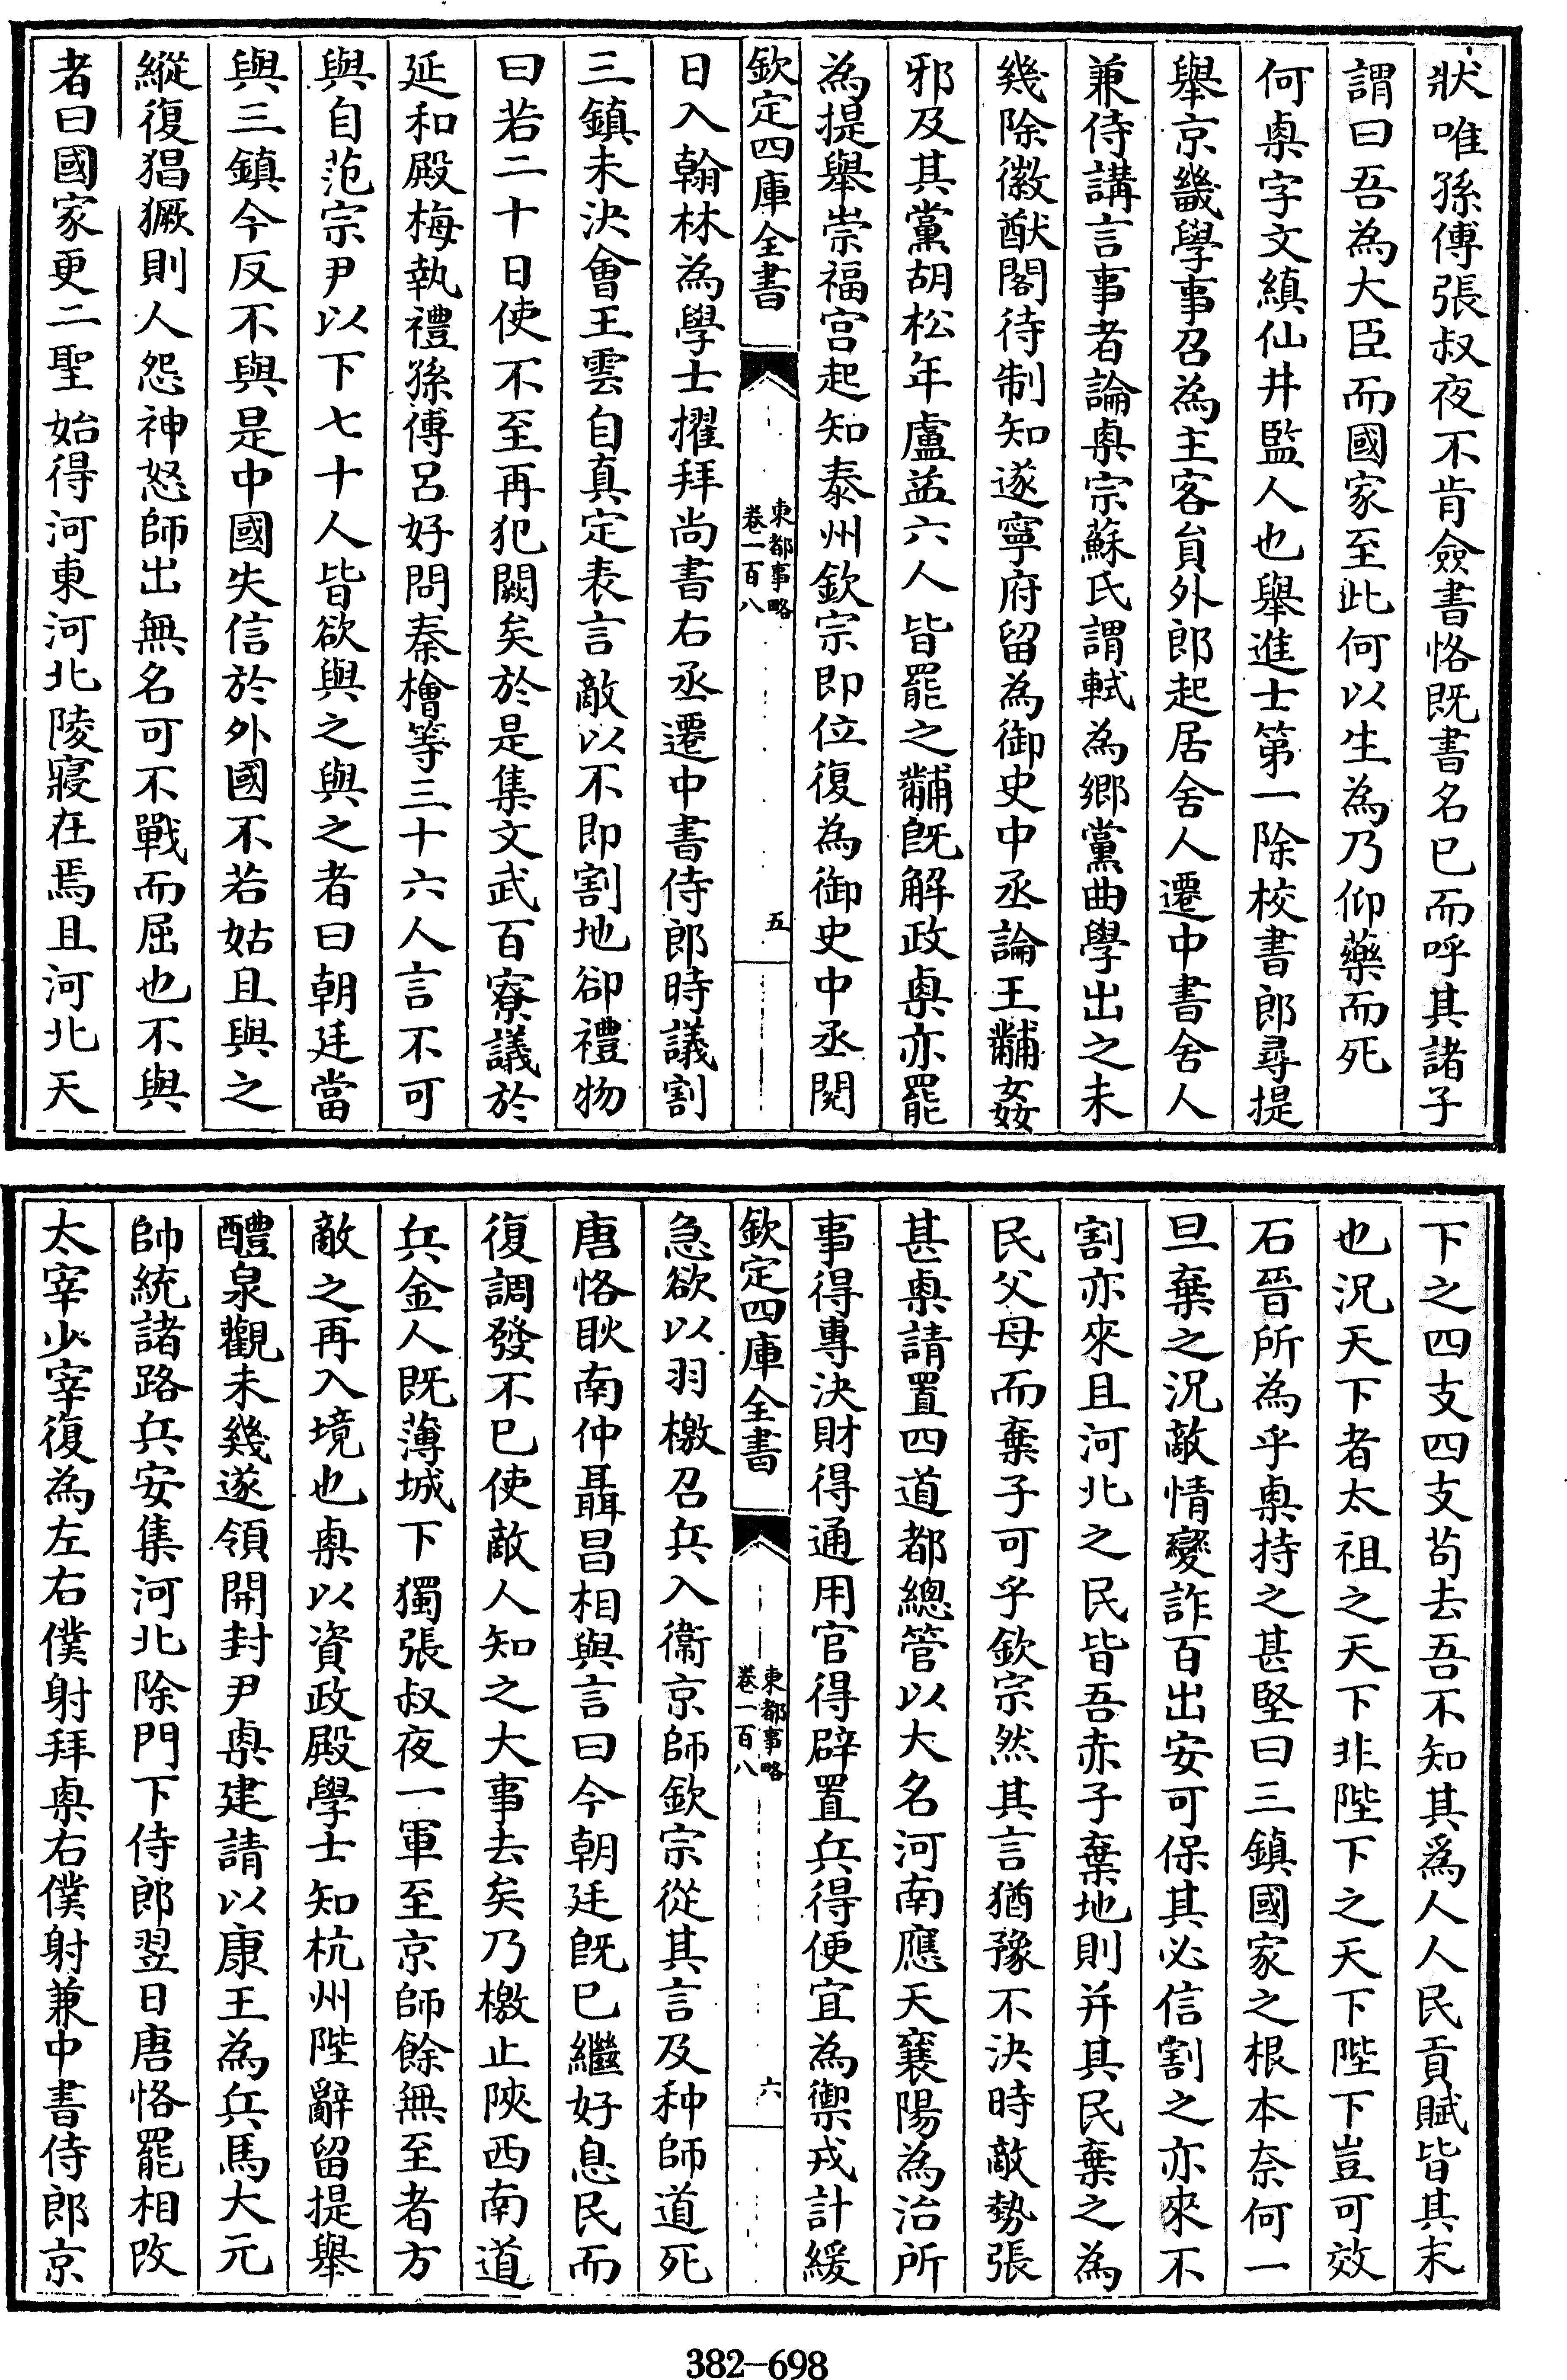 狀唯孫傅張叔夜不肯僉書恪既書名已而呼其諸子
謂曰吾為大臣而國家至此何以生為乃仰藥而死
何㮚字文縝仙井監人也舉進士第一除校書郎尋提
舉京畿學事召為主客員外郎起居舍人遷中書舍人
兼侍講言事者論㮚宗蘇氏謂軾為鄉黨曲學出之未
幾除徽猷閣待制知遂寧府留為御史中丞論王黼姦
邪及其黨胡松年盧益六人皆罷之黼既解政㮚亦罷
為提舉崇福宮起知泰州欽宗即位復為御史中丞閱
欽定四庫全書
東都事略
卷一百八
五
日入翰林為學士擢拜尚書右丞遷中書侍郎時議割
三鎮未決會王雲自真定表言敵以不即割地卻禮物
曰若二十日使不至再犯闕矣於是集文武百寮議於
延和殿梅執禮孫傅呂好問秦檜等三十六人言不可
與自范宗尹以下七十人皆欲與之與之者曰朝廷當
與三鎮今反不與是中國失信於外國不若姑且與之
縱復猖獗則人怨神怒師出無名可不戰而屈也不與
者曰國家更二聖始得河東河北陵寢在焉且河北天
下之四支四支苟去吾不知其為人人民貢賦皆其末
也況天下者太祖之天下非陛下之天下陛下豈可效
石晉所為乎㮚持之甚堅曰三鎮國家之根本奈何一
旦棄之況敵情變詐百出安可保其必信割之亦來不
割亦來且河北之民皆吾赤子棄地則并其民棄之為
民父母而棄子可乎欽宗然其言猶豫不決時敵勢張
甚㮚請置四道都總管以大名河南應天襄陽為治所
事得專決財得通用官得辟置兵得便宜為禦戎計緩
欽定四庫全書
東都事略
卷一百八
六
急欲以羽檄召兵入衞京師欽宗從其言及种師道死
唐恪耿南仲聶昌相與言曰今朝廷既已繼好息民而
復調發不已使敵人知之大事去矣乃檄止陝西南道
兵金人既薄城下獨張叔夜一軍至京師餘無至者方
敵之再入境也㮚以資政殿學士知杭州陛辭留提舉
醴泉觀未幾遂領開封尹㮚建請以康王為兵馬大元
帥統諸路兵安集河北除門下侍郎翌日唐恪罷相改
太宰少宰復為左右僕射拜㮚右僕射兼中書侍郎京
382-698